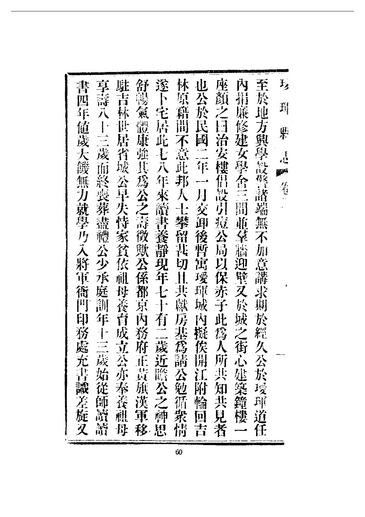 瑷琿縣志
至於地方興學設警諸端無不加意講求期於經久公於瑷琿道任
內捐廉修建女學舍三間並羣牆迎壁又於城之街心建築鐘樓一
座顏之曰治安樓倡設引痘公局以保赤子此為人所共知共見者
也公於民國二年一月交卸後暫寓瑷琿城內擬俟開江附輪回吉
林原籍間不意此邦人士攀留甚切且共獻房基為請公勉循衆情
遂卜宅居此七八年來讀書養靜現年七十有二歲近瞻公之神思
舒暢氣體康強其為公之壽徵歟公係都京內務府正黃旗漢軍移
駐吉林世居省城公早失恃家貧依祖母養育成立公亦奉養祖母
享壽八十三歲而終喪葬盡禮公少承庭訓年十三歲始從師讀讀
書四年值歲大饑無力就學乃入將軍衙門印務處充書識差旋又
60